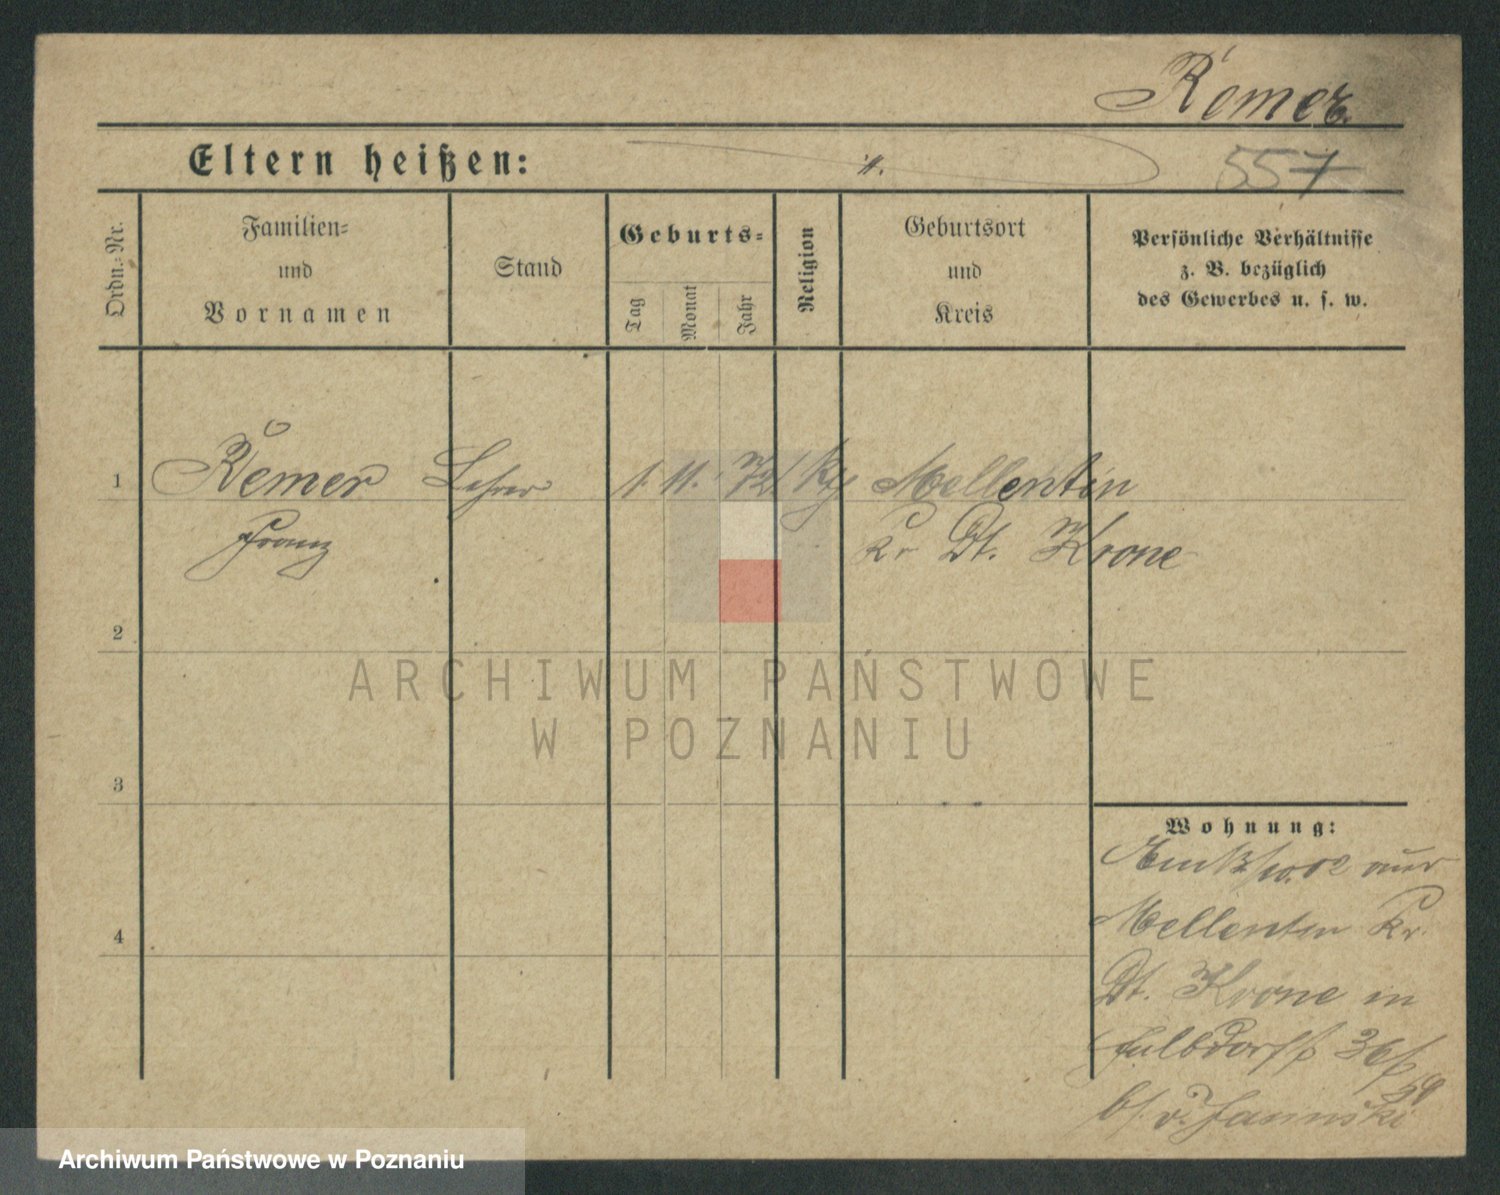 Remer
Eltern heißen: ✓.
557
Ordn.-Nr.
Familien-
und
Vornamen
Stand
Geburts-
Tag
Monat
Jahr
Religion
Geburtsort
und
Kreis
Persönliche Verhältnisse
z. B. bezüglich
des Gewerbes u. s. w.
1
Remer Lehrer 1. 11. 72 Mellentin
Franz Kr Dt. Krone
2
ARCHIWUM PAŃSTWOWE
W POZNANIU
3
Wohnung:
aus
Mellentin Kr.
4
Dt. Krone in
36
b/
Archiwum Państwowe w Poznaniu